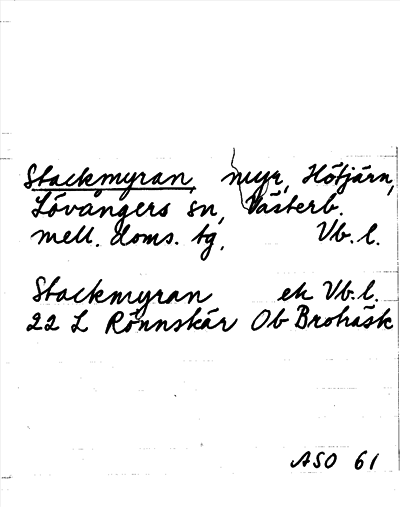 Stackmyran, myr, Hötjärn,
Lövångers sn, Västerb.
mell. doms. tg. Vb. l.
Stackmyran ek Vb. l.
22 L Rönnskär Ob Broträsk
ASO 61